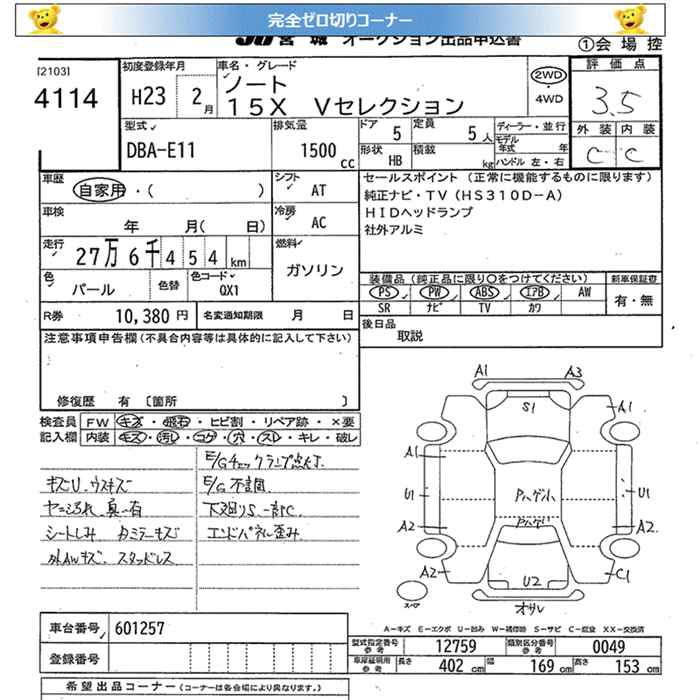 完全ゼロ切りコーナー
JU宮城 オークション出品申込書
①会場控
[2103]
4114
初度登録年月
H23 2月
車名・グレード
ノート
15X Vセレクション
2WD
・4WD
評価点
3.5
外装 内装
C C
型式
DBA-E11
排気量
1500cc
ドア 5
定員 5人
形状 HB
積載 kg
ディーラー・並行
モデル年式 年
ハンドル 左・右
車歴
自家用・( )
シフト
AT
セールスポイント (正常に機能するものに限ります)
純正ナビ・TV(HS310D-A)
HIDヘッドランプ
社外アルミ
車検
年 月( 日)
冷房
AC
走行
27万6千454km
燃料
ガソリン
色
パール
色替
色コード
QX1
装備品(純正品に限り○をつけてください)
PS PW ABS エアB AW
SR ナビ TV カワ
新車保証書
有・無
R券 10,380円
名変通知期限 月 日
後日品
取説
注意事項申告欄(不具合内容等は具体的に記入して下さい)
修復歴 有 〔箇所 〕
検査員記入欄
FW キズ・飛石・ヒビ割・リペア跡・×要
内装 キズ・汚レ・コゲ・穴・スレ・キレ・破レ
E/Gチェックランプ点灯
キズU、ウスキズ
E/G不調
下廻りS
シートしみ
エンドパネル歪み
外AWキズ スタッドレス
A1 A3
S1
A1 A1
A1
U1 U1
A2 A2
A2 C1
U2
オサレ
スペア
A-キズ E-エクボ U-凹み W-補修跡 S-サビ C-腐食 XX-交換済
車台番号 601257
登録番号
型式指定番号 参考 12759
類別区分番号 参考 0049
車庫証明用 参考 長さ 402cm 幅 169cm 高さ 153cm
希望出品コーナー(コーナーは各会場により異なります。)